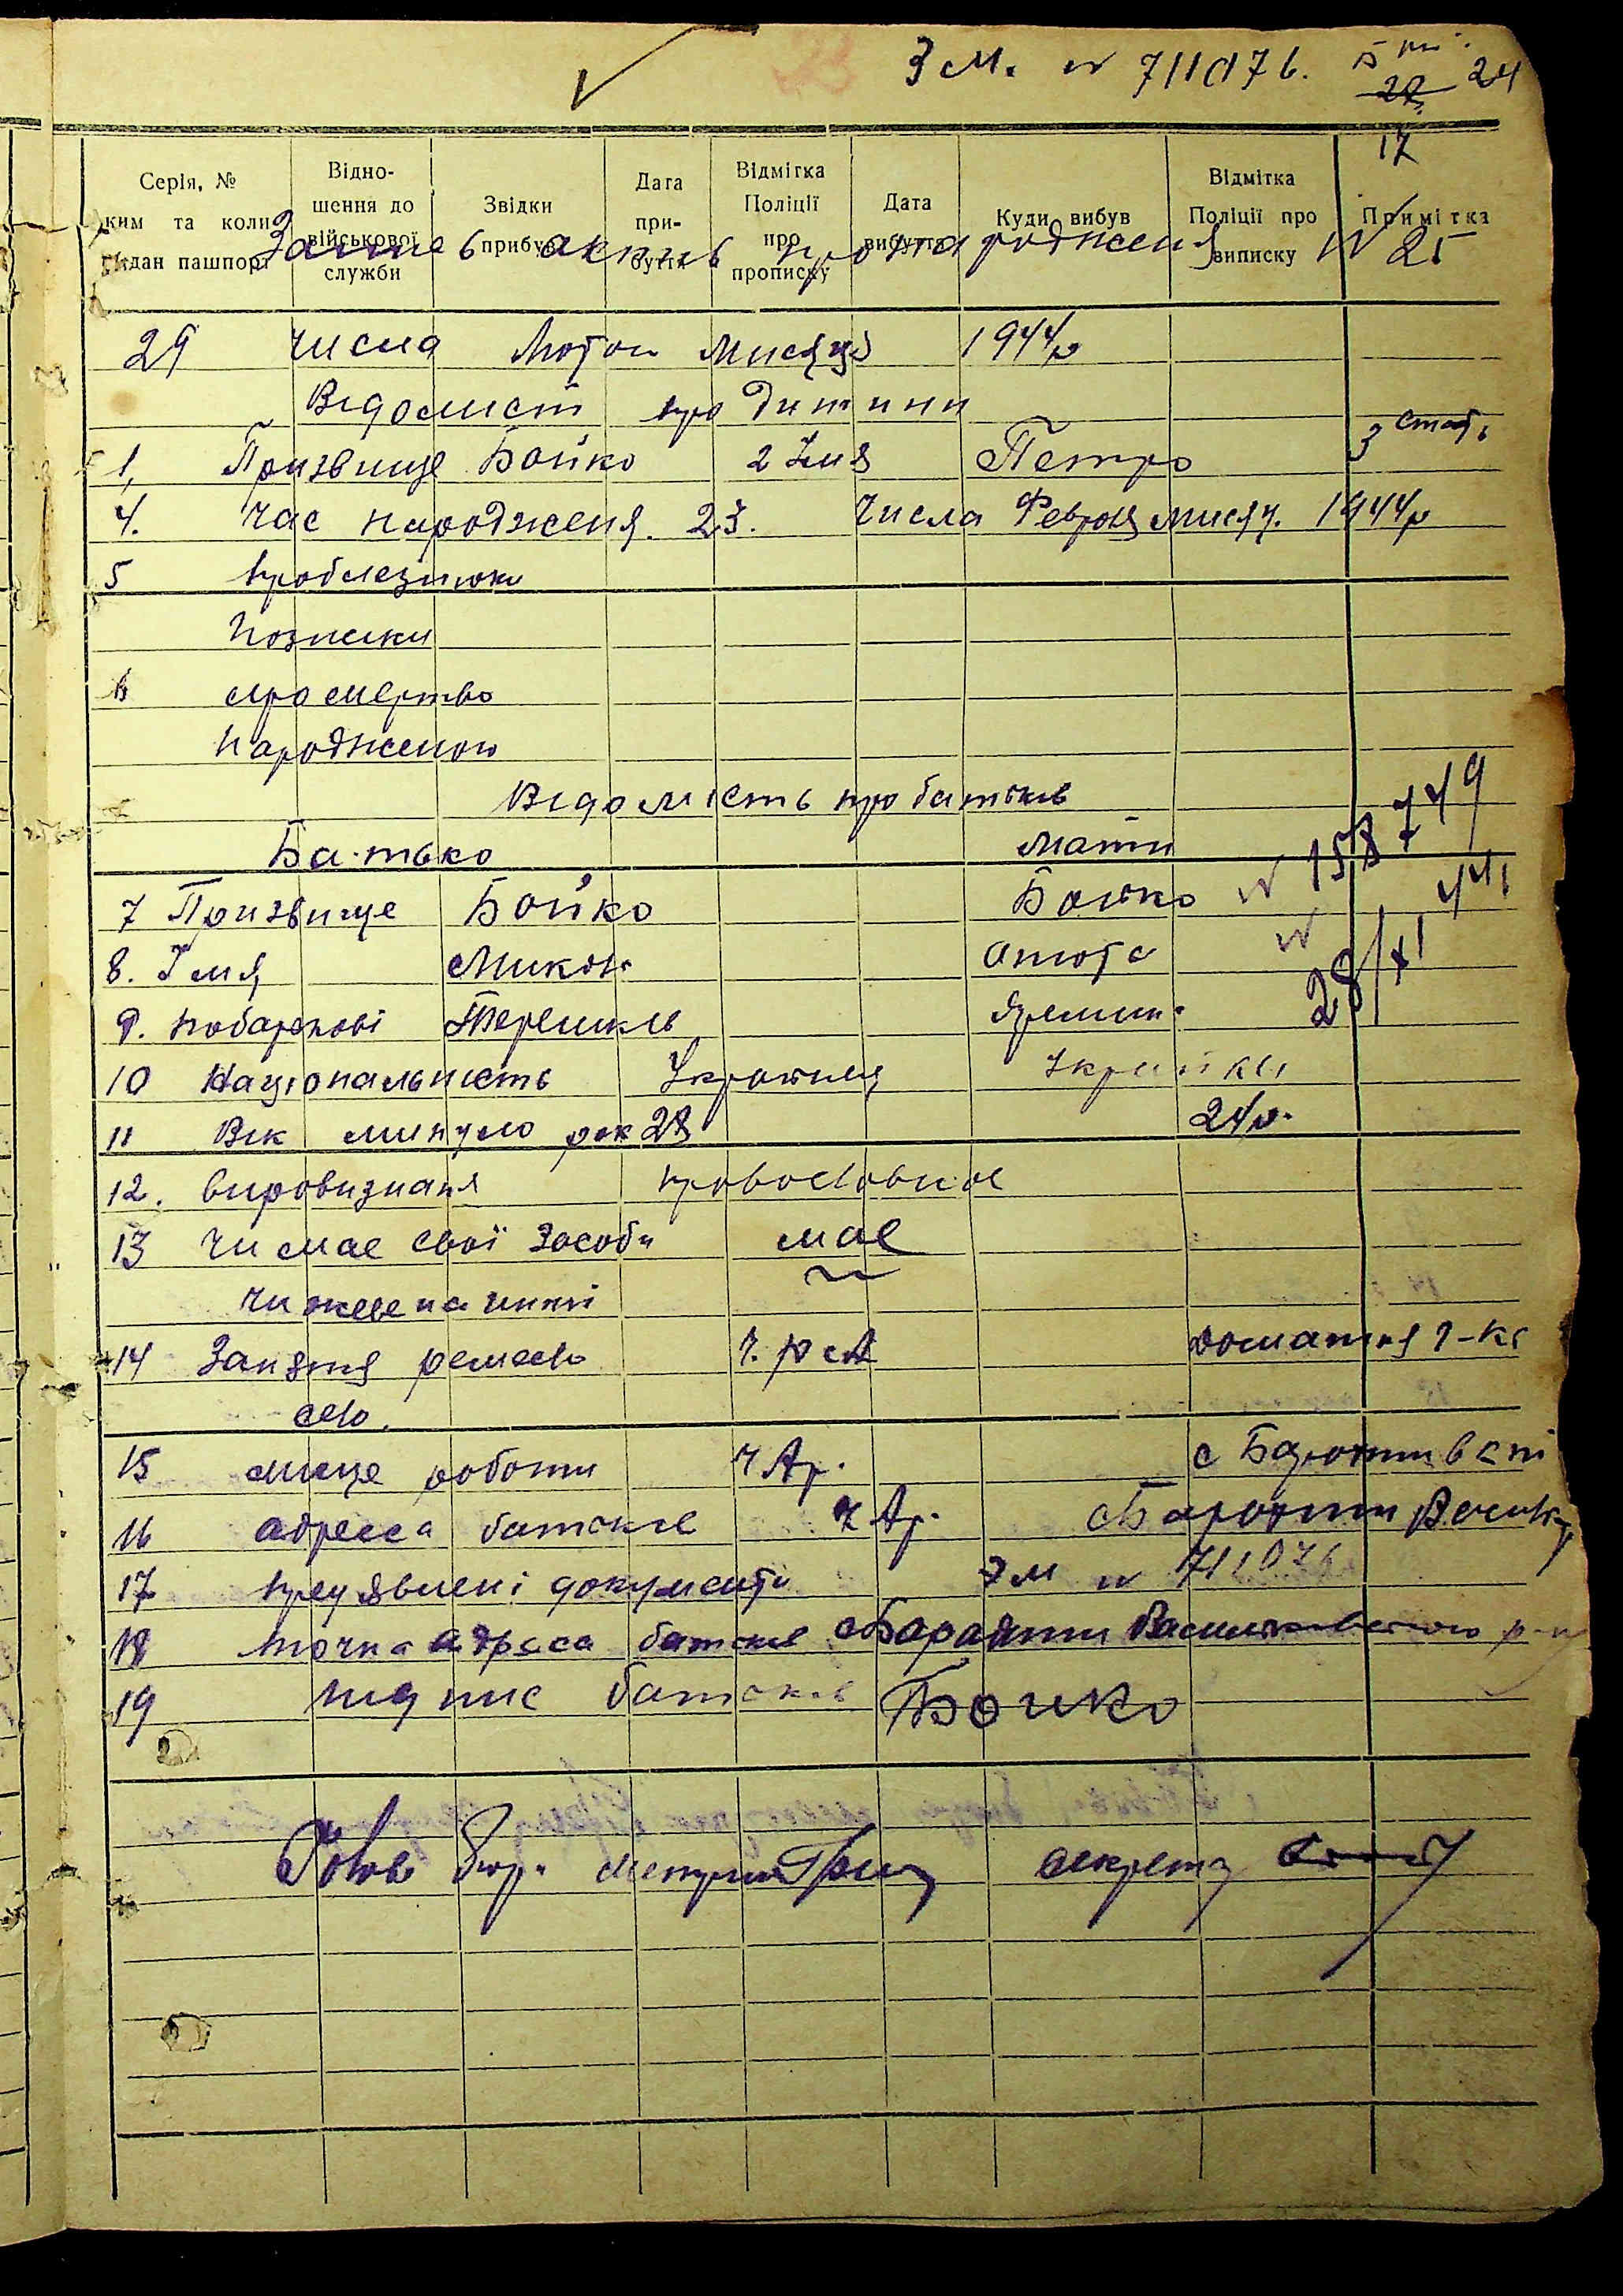 ЗМ. № 711076. 24
22
17
Серія, № ким та коли видан пашпорт
Відно-шення до військової служби
Звідки прибув
Дата при-буття
Відмітка Поліції про прописку
Дата вибуття
Куди вибув
Відмітка Поліції про виписку
Примітка
Запис актив про народженя № 25
29 числа Лютого мисяця 1944р
Відомист про дитини
1, Призвище Бойко 2 Імя Петро 3 стать
4. Час народженя. 23. числа Февраля мисяц. 1944р
5
Познаки
6 про мертво
народженого
Відомість про батьків
Батько Мати
7 Призвище Бойко Бойко № 158449
8. Імя Микола Анюта № 28/XI 44
9. по батькові Терешків Яремин
10 Національність Українец Українка
11 Вік минуло рок 28 24р.
12. вировизнаня православное
13 Чи має свої засоби має
чи живе на чижі
14 Занятя ремесло ч. рса домашня г-ка
сло.
15 мисце роботи ч Ар. с Барахти в кпі
16 адресса батьків ч Ар. с Барахти Васильк
17 предявлені документи ЗМ № 711076
18 точна адреса батьків с Барахти Васильковского р-н
19 підпис батьків Бойко
Голов бюр. секрета